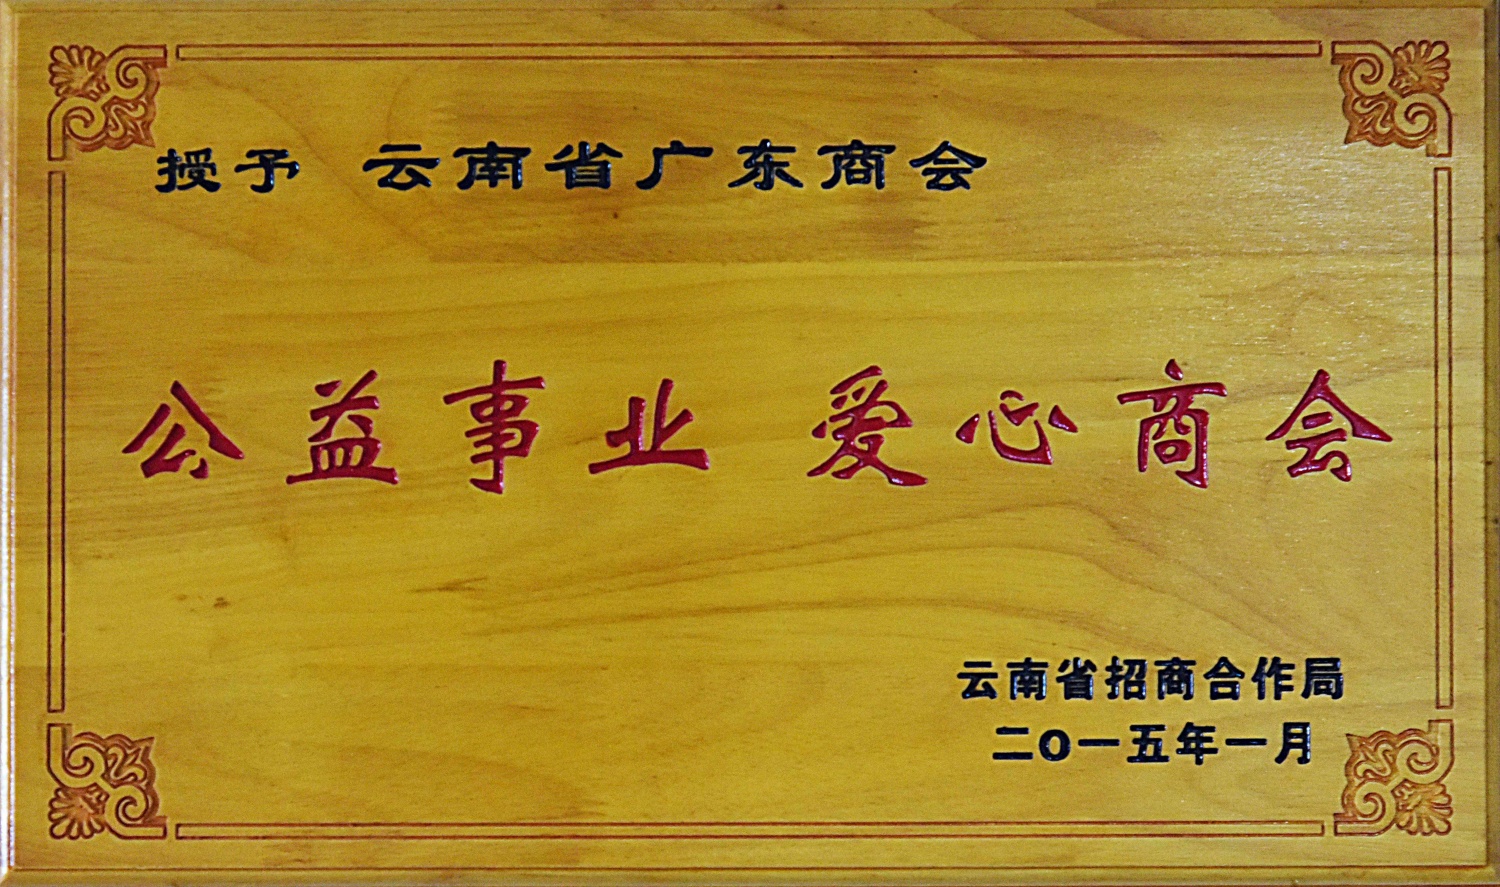 授予 云南省广东商会
公益事业 爱心商会
云南省招商合作局
二〇一五年一月